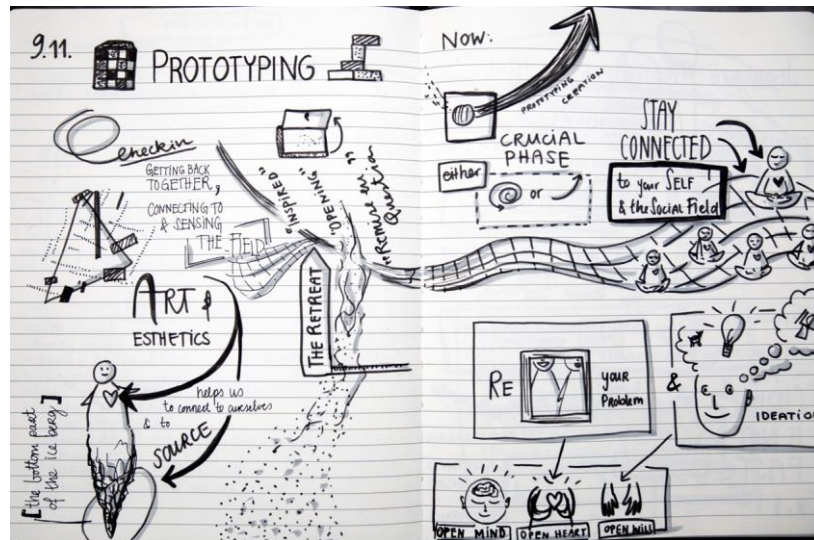 9.11.
PROTOTYPING
checkin
GETTING BACK
TOGETHER,
CONNECTING TO
& SENSING
THE FIELD
"INSPIRED"
OPENING"
"Remise en
Question"
ART &
ESTHETICS
helps us
to connect to ourselves
& to
SOURCE
[the bottom part
of the ice berg]
THE RETREAT
NOW:
PROTOTYPING
CREATION
CRUCIAL
PHASE
either
or
STAY
CONNECTED
to your SELF
& the Social Field
RE
your
Problem
&
IDEATION
OPEN MIND
OPEN HEART
OPEN WILL